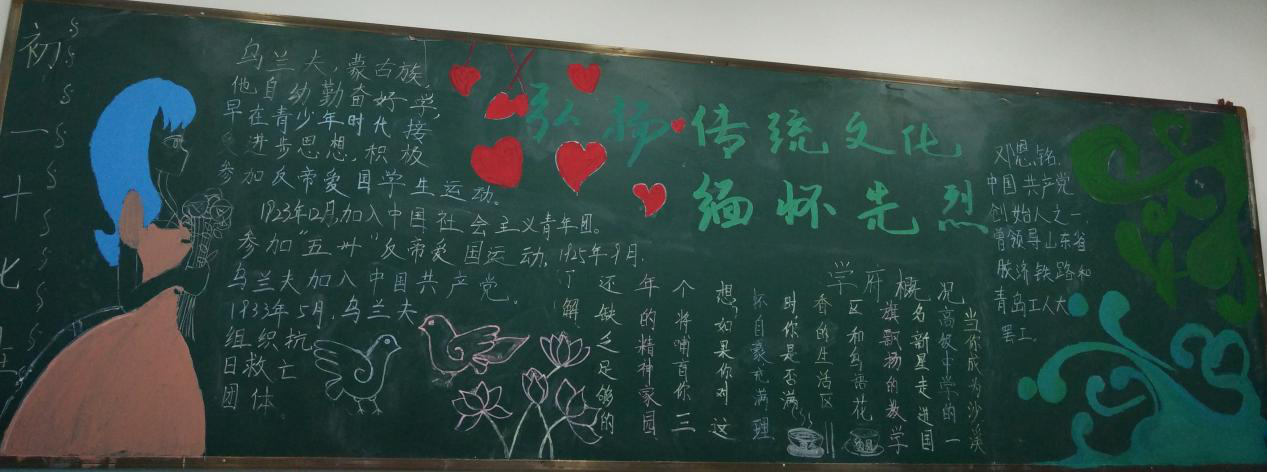 初一十七
乌兰夫,蒙古族,
他自幼勤奋好学,
早在青少年时代接
进步思想,积极
参加反帝爱国学生运动。
1923年12月,加入中国社会主义青年团。
参加"五卅"反帝爱国运动,1925年9月,
乌兰夫加入中国共产党。
1933年5月,乌兰夫
组织抗
日救亡
团体。
弘扬传统文化
缅怀先烈
学府概况
当你成为沙溪
高级中学的一
名新星走进国
旗歌扬的教学
区和鸟语花
香的生活区
时你是否满
怀自豪充满理
想,如果你对这
个将哺育你三
年的精神家园
还缺乏足够的
了解
邓恩铭,
中国共产党
创始人之一
曾领导山东省
胶济铁路和
青岛工人大
罢工